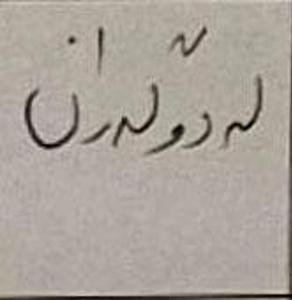 لە دۆلەران